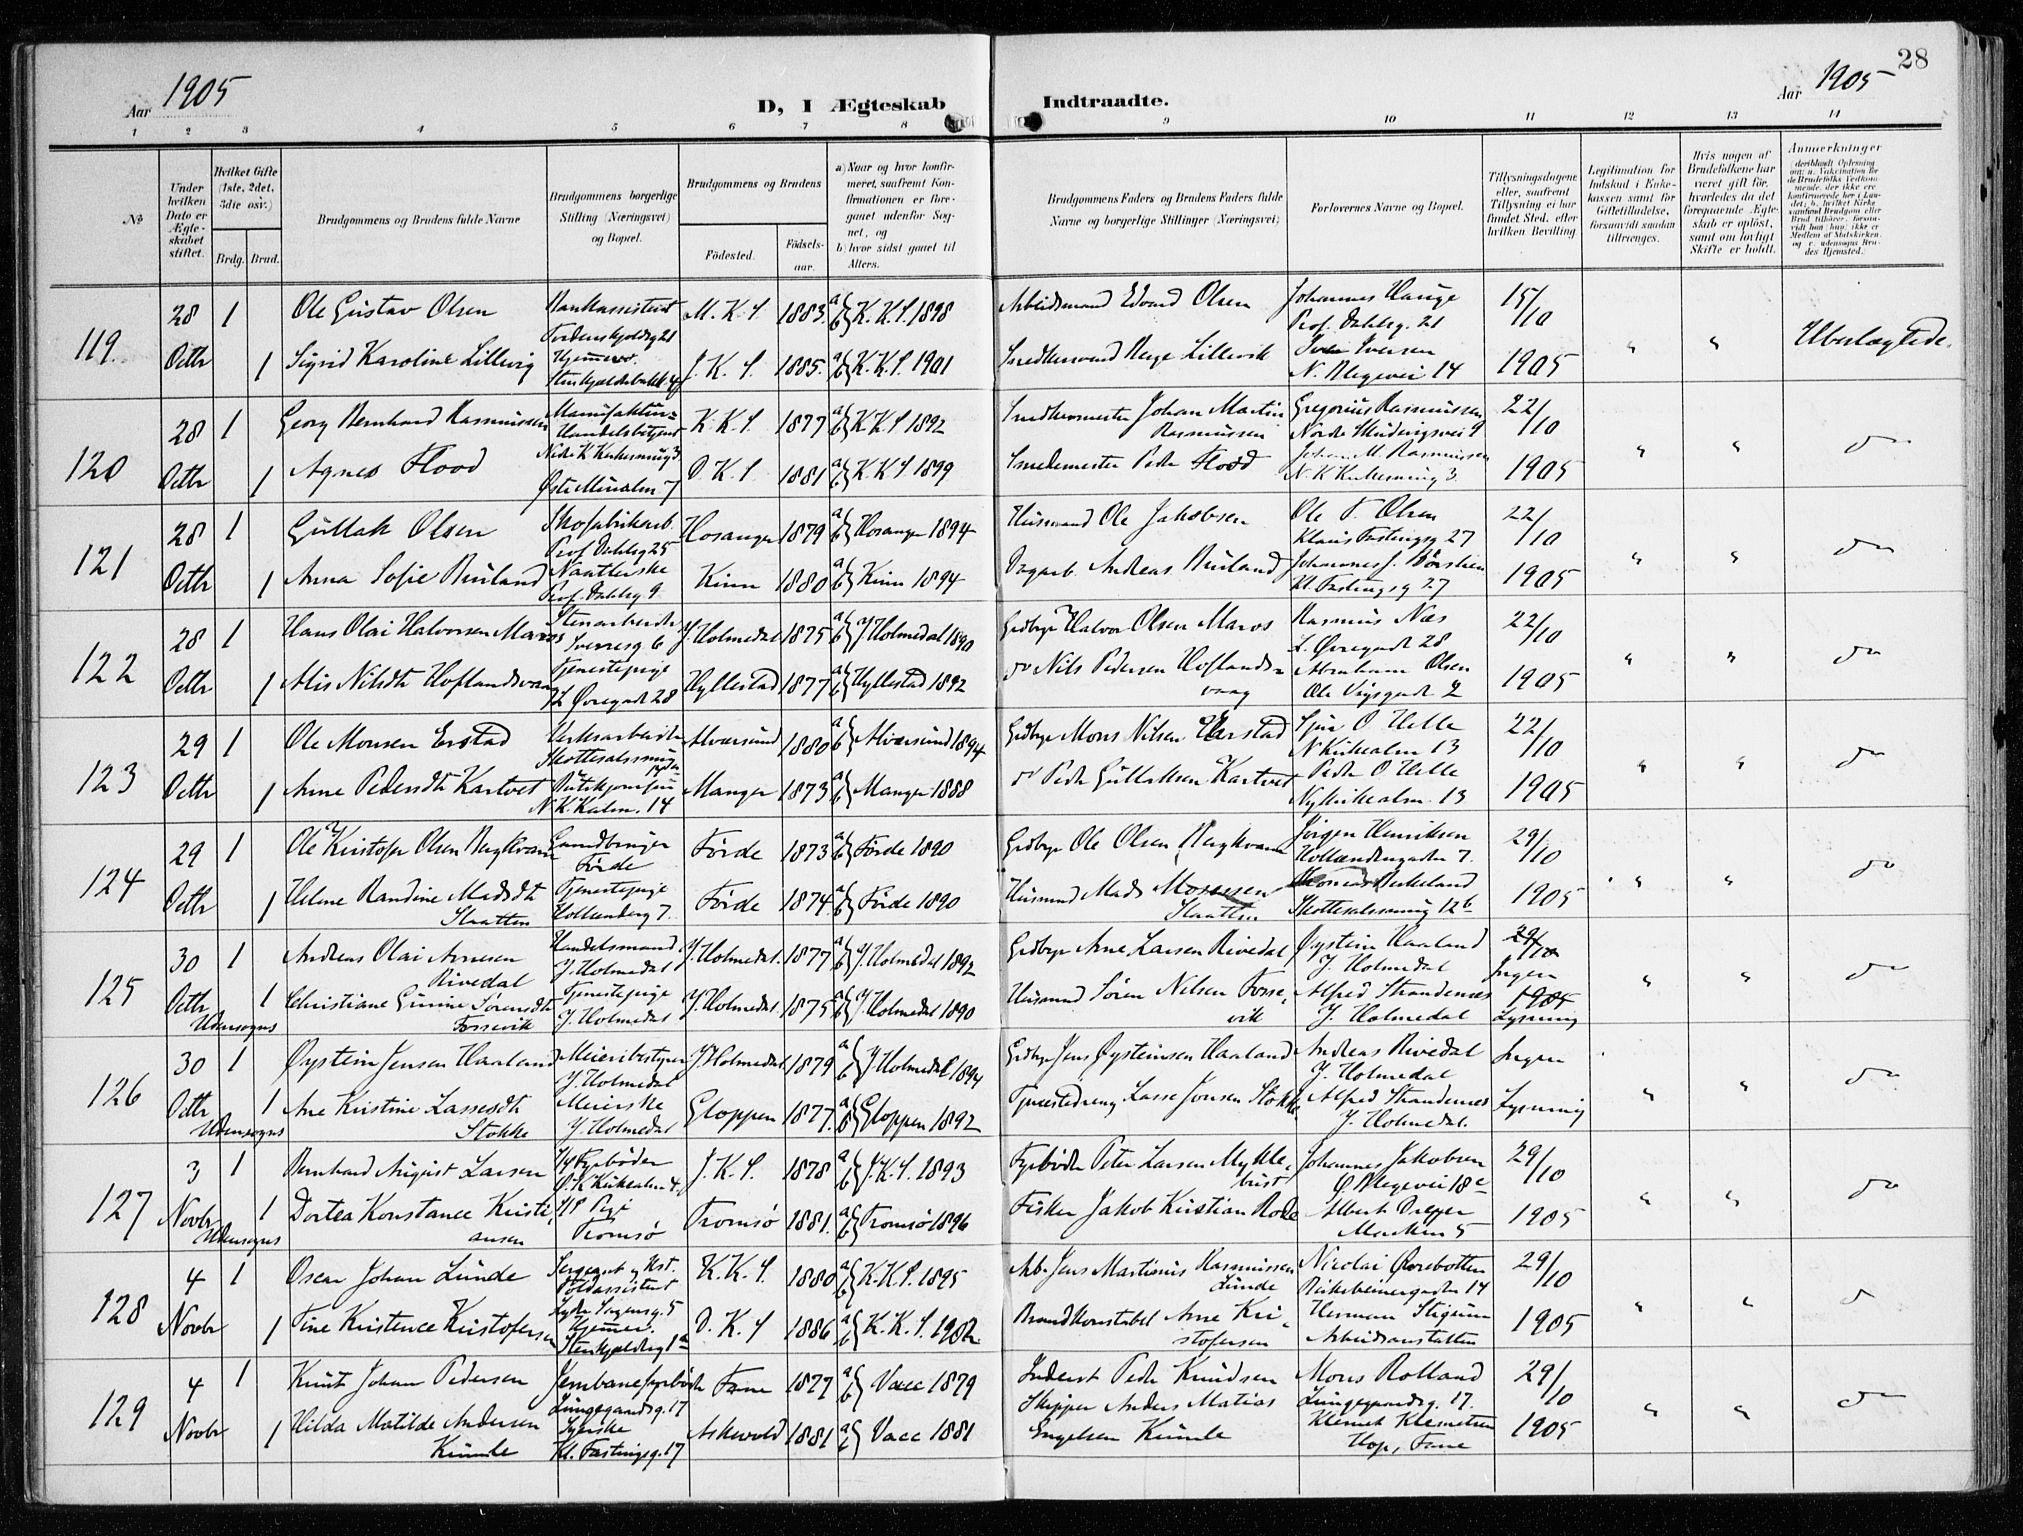 28
Aar 1905
D, I Ægteskab Indtraadte.
Aar 1905
1 2 3 4 5 6 7 8 9 10 11 12 13 14
№
Under hvilken Dato er Ægteskabet stiftet.
Hvilket Gifte (1ste, 2det, 3die osv.)
Brdg. Brud.
Brudgommens og Brudens fulde Navne
Brudgommens borgerlige Stilling (Næringsvei) og Bopæl.
Brudgommens og Brudens
Fødested.
Fødsels-aar.
a) Naar og hvor konfirmeret, saafremt Konfirmationen er foregaaet udenfor Sognet, og
b) hvor sidst gaaet til Alters.
Brudgommens Faders og Brudens Faders fulde Navne og borgerlige Stillinger (Næringsvei)
Forlovernes Navne og Bopæl.
Tillysningsdagene eller, saafremt Tillysning ei har fundet Sted, efter hvilken Bevilling
Legitimation for Indskud i Enkekassen samt for Giftetilladelse, forsaavidt saadan tiltrænges.
Hvis nogen af Brudefolkene har været gift før, hvorledes da det foregaaende Ægteskab er opløst, samt om lovligt Skifte er holdt.
Anmerkninger
119. 28 1 Ole Gustav Olsen Bankassistent M. K. S. 1883 K. K. S. 1898 Arbeidsmand Edvard Olsen Johannes Hauge 15/10
Tordenskjoldsg 21 Prof. Dahlsg. 21
Octbr 1 Sigrid Karoline Lillevig Hjemmev. J. K. S. 1885. K. K. S. 1901 Snedkersvend Berge Lillevik Iversen 1905 Ubeslægtede.
N. Blegevei 14
120 28 1 Georg Bernhard Rasmussen Manufaktur- K. K. S. 1877 K. K. S 1892 Snedkermester Johan Martin Gregorius Rasmussen 22/10
Handelsbetjent Rasmussen
Octbr 1 Agnes Flood D. K. S. 1881 K K S 1899 Smedemester Peder Flood Johan M. Rasmussen 1905 do
121 28 1 Gullak Olsen Skofabrikarb. Hosanger 1879 Hosanger 1894 Husmand Ole Jakobsen Ole T. Olsen 22/10
Prof Dahlsg 25 Klaus Fastingsg 27
Octbr 1 Anna Sofie Buland Naatlerske Kinn 1880 Kinn 1894 Dagarb. Andreas Buland 1905 do
Prof. Dahlsg 9. Kl. Fastingsg 27
122 28 1 Hans Olai Halvorsen Maros Stenarbeider Y. Holmedal 1875 Y. Holmedal 1890 Grdbr Halvor Olsen Maros Rasmus Næs 22/10
Sverresg 6 L. Øvregade 28
Octbr 1 Alis Nilsdtr Hoflandsvaag Tjenestepige Hyllestad 1877 Hyllestad 1892 do Nils Pedersen Hoflands- Abraham Olsen 1905 do
L Øvregade 28 vaag Ole Vigsgade 2
123 29 1 Ole Monsen Erstad Verksarbeider Alversund 1880 Alversund 1894 Grdbr Mons Nilsen Erstad Sjur O Helle 22/10
N Kirkealm 13
Octbr 1 Anne Pedersdtr Kartvet Manger 1873 Manger 1888 do Peder Gullaksen Kartvet Peder O Helle 1905 do
N. K. Kalm. 14 Ny Kirkealm. 13
124 29 1 Ole Kristofer Olsen Bergkvam Grundbruger Førde 1873 Førde 1890 Grdbr Ole Olsen Bergkvam Jørgen Henriksen 29/10
Førde Hollændergaden 7.
Octbr 1 Helene Randine Madsdtr Tjenestepige Førde 1874 Førde 1890 Husmand Mads Monsen Thomas Birkeland 1905 do
Slaatten Hollænderg 7. Slaatten Skottesalsmug 12b
125 30 1 Andreas Olai Arnesen Handelsmand Y. Holmedal. 1877 Y. Holmedal 1892 Grdbr Arne Larsen Rivedal Øystein Haaland 29/10
Rivedal Y. Holmedal Y. Holmedal Ingen
Octbr 1 Christiane Gurine Sørensdtr Tjenestepige Y. Holmedal 1875 Y. Holmedal 1890 Husmand Søren Nilsen Fosse- Alfred Strandenæs 1905 do
Udensogns Fossevik Y. Holmedal vik Y. Holmedal Lysning
126 30 1 Øystein Jensen Haaland Meieribestyrer Y. Holmedal 1879 Y. Holmedal 1894 Grdbr Jens Øysteinsen Haaland Andreas Rivedal Ingen
Y. Holmedal Y. Holmedal
Octbr 1 Ane Kristine Lassesdtr Meierske Gloppen 1877. Gloppen 1892 Lasse Jonsen Stokke Alfred Strandenæs Lysning do
Udensogns Stokke Y. Holmedal Y. Holmedal.
127 3 1 Bernhard August Larsen Fyrbøder J. K. S. 1878 J. K. S. 1893 Fyrbøder Peter Larsen Mykle- Johannes Jakobsen 29/10
bust Ø Blegevei 18c
Novbr 1 Dortea Konstance Kristi- Pige Tromsø 1881. Tromsø 1896 Fisker Jakob Kristian Rode Albert Dreyer 1905 do
Udensogns ansen Tromsø Marken 5
128 4 1 Oscar Johan Lunde Sergeant og Kst. K. K. S. 1880 K. K. S. 1895 Arb. Jens Martinus Rasmussen Nicolai Øvrebotten 29/10
Toldassistent Lunde Birkebeinergaden 14
Novbr 1 Tine Kristence Kristofersen Lyder Sagensg. 5 D. K. S 1886 K. K. S. 1902. Brandkonstabel Arne Kri- Herman Stigum 1905
Hjemmev. stofersen Arbeidsanstalten
129 4 1 Knut Johan Pedersen Jernbanefyrbøder Fane 1877 Vacc 1879 Inderst Peder Knudsen Mons Rolland 29/10
Lungegaardsg. 17 Skipper Anders Matias Lungegaardsg. 17.
Novbr 1 Hilda Matilde Andersen Syerske Askevold 1881 Vacc 1881 Engelsen Kumle Klemet Klemetsen 1905 do
Kumle Kl. Fastingsg. 17 Hop, Fane